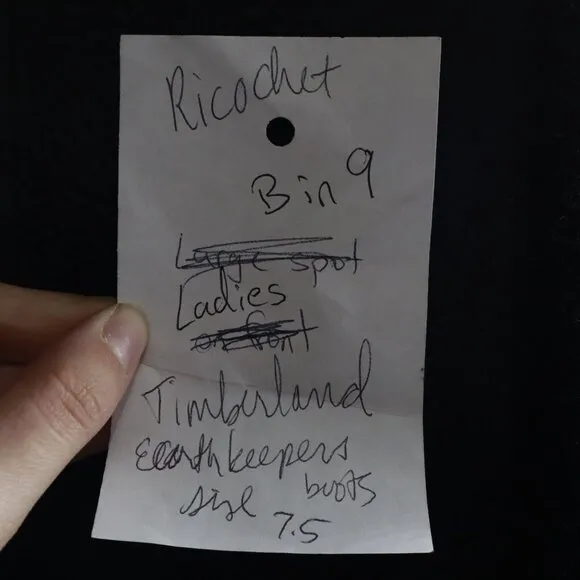 Ricochet
Bin 9
Large spot
Ladies
on front
Timberland
Earthkeepers
size boots
7.5